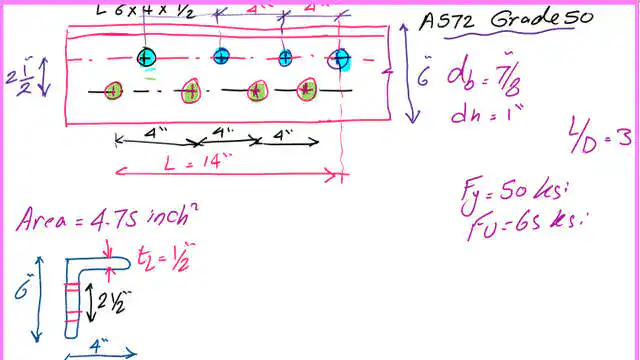 L 6x4x1/2
4" 4"
A572 Grade 50
2 1/2"
6"
db = 7/8"
dh = 1"
4" 4" 4"
L = 14"
L/D = 3
Fy = 50 ksi
Fu = 65 ksi
Area = 4.75 inch²
tL = 1/2"
6"
2 1/2"
4"